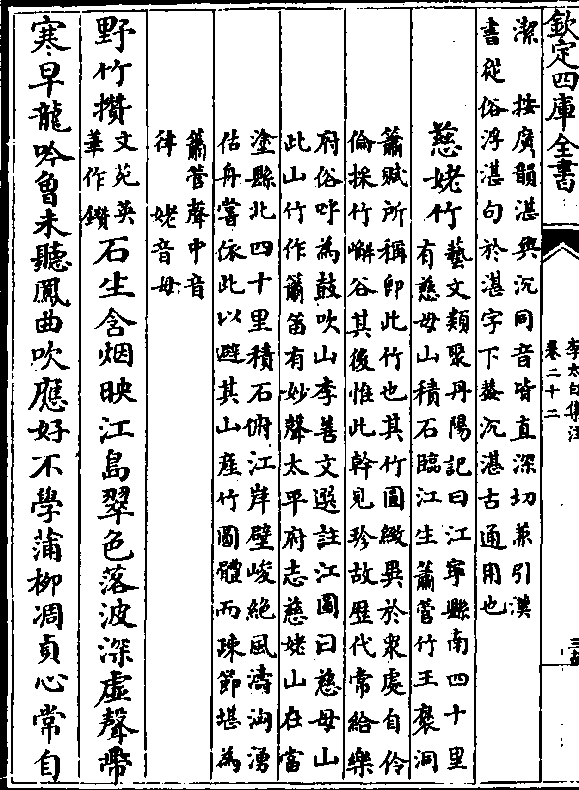 欽定四庫全書
李太白集注
卷二十二
潔　按廣韻湛與沉同音皆直深切兼引漢
書從俗浮湛句於湛字下葢沉湛古通用也
慈姥竹
藝文類聚丹陽記曰江寧縣南四十里
有慈母山積石臨江生簫管竹王褒洞
簫賦所稱即此竹也其竹圓緻異於衆處自伶
倫採竹嶰谷其後惟此幹見珍故歴代常給樂
府俗呼為鼓吹山李善文選註江圖曰慈母山
此山竹作簫笛有妙聲太平府志慈姥山在當
塗縣北四十里積石俯江岸壁峻絶風濤洶湧
估舟嘗依此以避其山産竹圓體而疎節堪為
簫管聲中音
律　姥音母
野竹攢
文苑英
華作鑚
石生含烟映江島翠色落波深虛聲帶
寒早龍吟曾未聽鳳曲吹應好不學蒲柳凋貞心常自